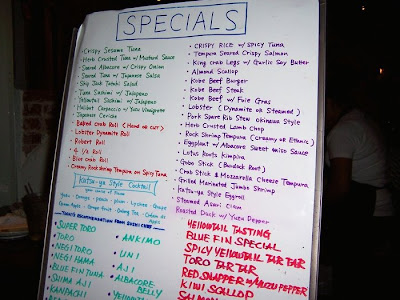 SPECIALS
• Crispy Sesame Tuna
• Herb Crusted Tuna w/ Mustard Sauce
• Seared Albacore w/ Crispy Onion
• Seared Tuna w/ Japanese Salsa
• Skip Jack Tataki Salad
• Tuna Sashimi w/ Jalapeño
• Yellowtail Sashimi w/ Jalapeño
• Halibut Carpaccio w/ Yuzu Vinaigrette
• Japanese Ceviche
• Baked Crab Roll (Hand or cut)
• Lobster Dynamite Roll
• Robert Roll
• Blue Crab Roll
• Creamy Rock Shrimp Tempura on Spicy Tuna
Katsu-ya Style Cocktail
SUPER TORO
TORO
NEGI TORO
NEGI HAMA
BLUE FIN TUNA
SHIMA AJI
KANPACHI
ANKIMO
UNI
AJI
ALBACORE
BELLY
• CRISPY RICE w/ SPICY TUNA
• Tempura Seared Crispy Salmon
• King Crab Legs w/ Garlic Soy Butter
• Almond Scallop
• Kobe Beef Burger
• Kobe Beef Steak
• Kobe Beef w/ Foie Gras
• Lobster (Dynamite or Steamed)
• Pork Spare Rib Stew Okinawa Style
• Herb Crusted Lamb Chop
• Rock Shrimp Tempura (Creamy or Ethnic)
• Eggplant w/ Albacore Sweet Miso Sauce
• Lotus Roots Kimpira
• Gobo Stick (Burdock Root)
• Crab Stick & Mozzarella Cheese Tempura
• Grilled Marinated Jumbo Shrimp
• Katsu-ya Style Eggroll
• Steamed Asari Clam
Roasted Duck w/ Yuzu Pepper
YELLOWTAIL TASTING
BLUE FIN SPECIAL
SPICY YELLOWTAIL TAR TAR
TORO TAR TAR
RED SNAPPER w/ YUZU PEPPER
KIWI SCALLOP